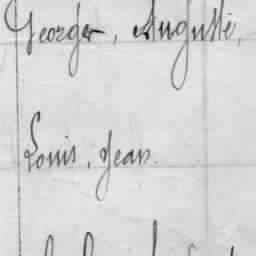 Georges, Auguste,
Louis, Jean.